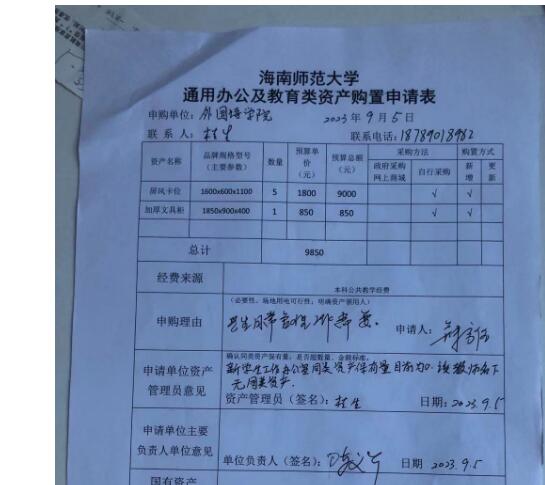 海南师范大学
通用办公及教育类资产购置申请表
申购单位：外国语学院 2023年9月5日
联系人： 联系电话：18789018982
资产名称 品牌规格型号（主要参数） 数量 预算单价（元） 预算总额（元） 采购方法 购置方式
政府采购网上商城 自行采购 新增 更新
屏风卡位 1600x600x1100 5 1800 9000 √ √
加厚文具柜 1850x900x400 1 850 850 √ √
总计 9850
经费来源 本科公共教学经费
申购理由 （必要性、场地用电可行性，明确资产领用人）
日常管理工作需要。 申请人：
申请单位资产管理员意见 确认同类资产保有量，是否超数量、金额标准。
新学生工作办公室同类资产保有量目前为0，该教师名下
无同类资产。
资产管理员（签名）： 日期：2023.9.5
申请单位主要负责人单位意见 单位负责人（签名）： 日期 2023.9.5
国有资产